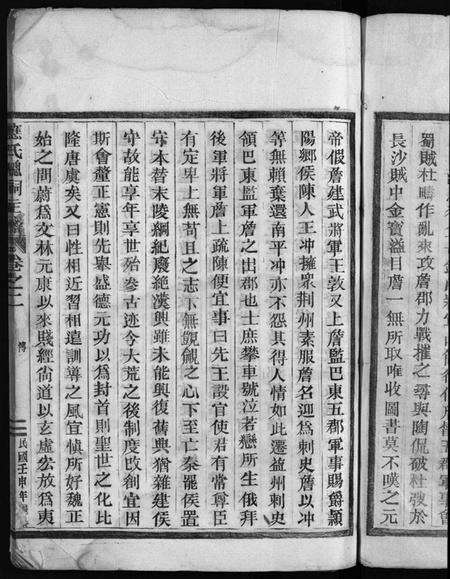 蜀賊杜疇作亂來攻詹郡力戰摧之尋與陶侃破杜弢於
長沙賊中金寶溢目詹一無所取唯收圖書莫不嘆之元
帝假詹建武將軍王敦又上詹監巴東五郡軍事賜爵潁
陽鄉侯陳人王冲擁眾荆州素服詹名迎爲刺史詹以冲
等無賴棄還南平冲亦不怨其得人情如此遷益州刺史
領巴東監軍詹之出郡也士庶攀車號泣若戀所生俄拜
後軍將軍詹上疏陳便宜事曰先王設官使君有常尊臣
有定卑上無苟且之志下無覬覦之心下至亡秦罷侯置
守本替末陵綱紀廢絶漢興雖未能興復舊典猶雜建侯
守故能享年享世殆參古迹今大荒之後制度改創宜因
斯會釐正憲則先舉盛德元功以爲封首則聖世之化比
隆唐虞矣又曰性相近習相遠訓導之風宜慎所好魏正
始之間蔚爲文林元康以來賤經尚道以玄虛宏放爲夷
應氏總祠主譜 卷之二 傳 民國壬申年